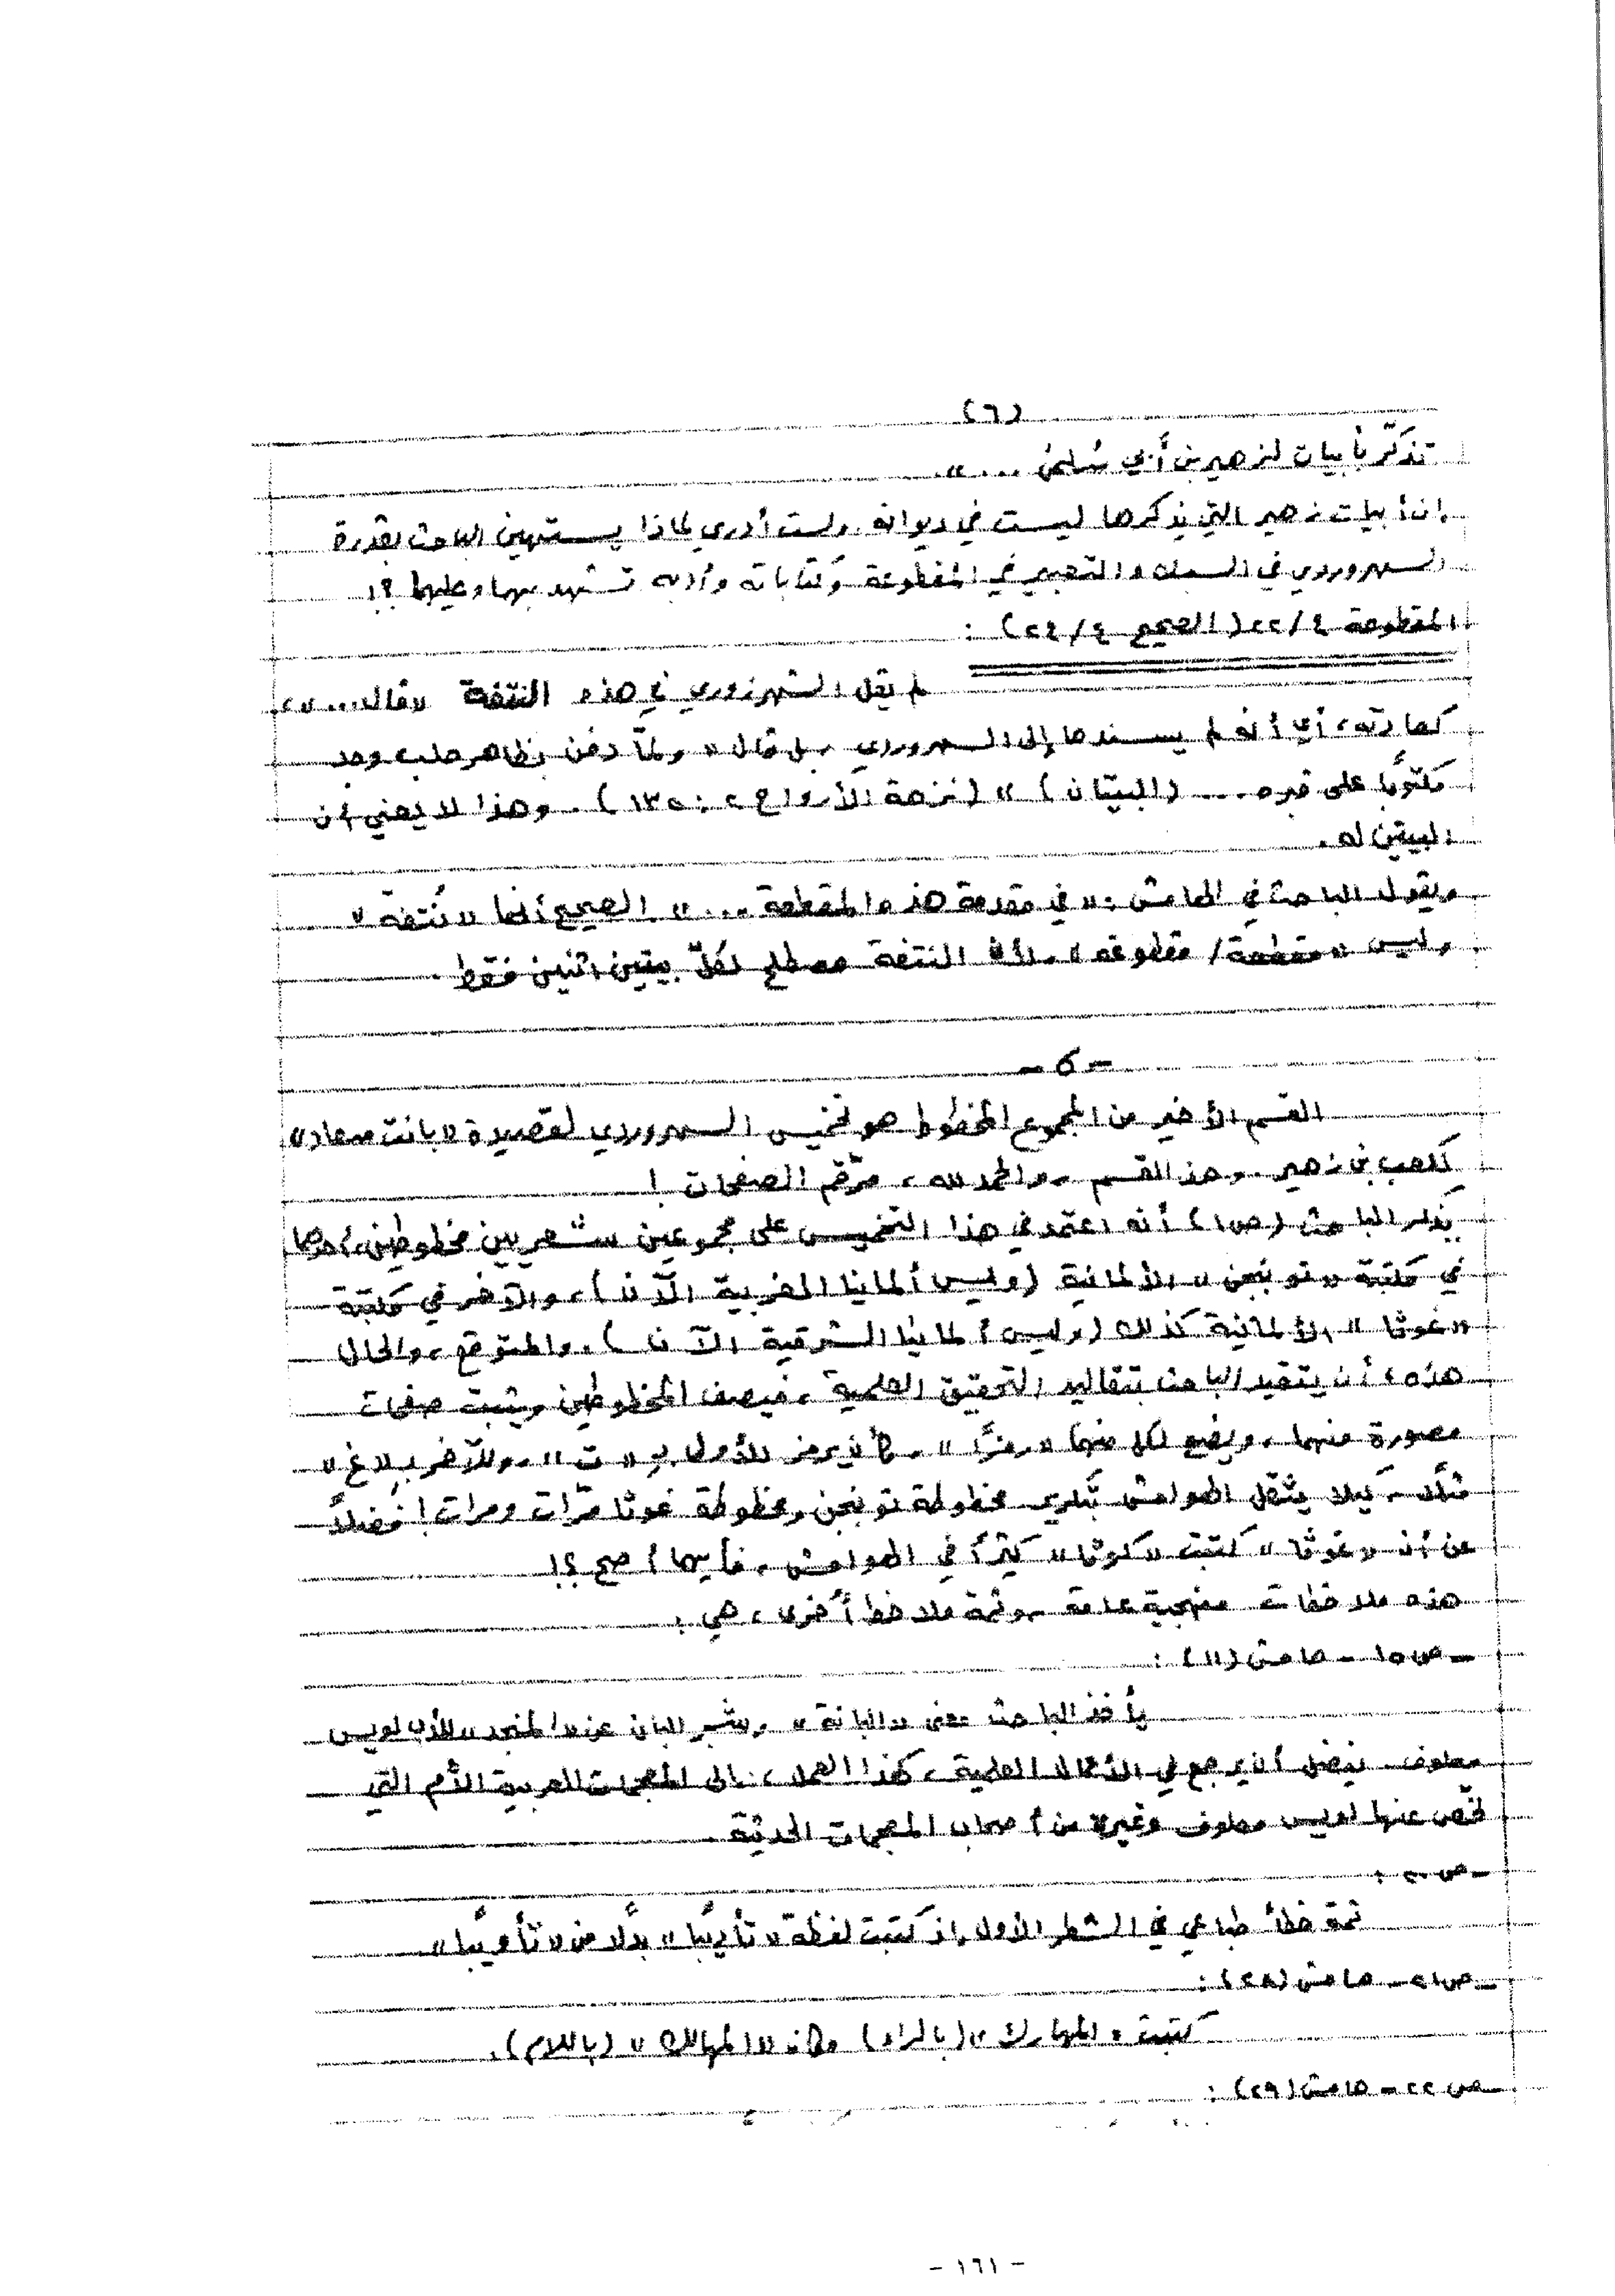 (٦)
تذكّر بأبيات لزهير بن أبي سُلمى ... ».
إن أبيات زهير التي يذكرها ليست في ديوانه. ولست أدري لماذا يستهين الباحث بقدرة
السهروردي في السبك والتعبير في المقطوعة وكتاباته وأدبه تشهد بهما وعليهما ؟!
المقطوعة ٢٢/٤ (الصحيح ٢٤/٤) :
لم يقل الشهرزوري في هذه النتفة «قال...»،
كعادته، أي أنه لم يسندها إلى السهروردي، بل قال « ولمّا دفن بظاهر حلب وجد
مكتوبًا على قبره ... (البيتان) » (نزهة الأرواح ٢: ١٣٥). وهذا لا يعني أن
البيتين له.
ويقول الباحث في الهامش : « في مقدمة هذه المقطعة ... ». الصحيح أنها « نُتفة »
وليس « مقطعة/ مقطوعة »، لأن النتفة مصطلح لكلّ بيتين اثنين فقط.
- ٥ -
القسم الأخير من المجموع المخطوط هو تخميس السهروردي لقصيدة «بانت سعاد»
لكعب بن زهير. وهذا القسم، والحمد لله، مرّقم الصفحات !
يذكر الباحث (ص١) أنه اعتمد في هذا التخميس على مجموعين شعريين مخطوطين، أحدهما
في مكتبة « توبنجن » الألمانية (وليس ألمانيا الغربية الآن)، والآخر في مكتبة
« غوثا » الألمانية كذلك (وليس ألمانيا الشرقية الآن). والمتوقع، والحال
هذه، أن يتقيد الباحث بتقاليد التحقيق العلمية، فيصف المخطوطين ويثبت صفحات
مصورة منهما، ويضع لكل منهما « رمزًا »، كأن يرمز للأول بـ « ت »، وللآخر بـ « غ »
مثلًا، كيلا يثقل الهوامش بتكرير مخطوطة توبنجن ومخطوطة غوثا مرّات ومرات! فضلًا
عن أن « غوثا » كتبت « كوثا » كثيرًا في الهوامش، فأيهما أصح ؟!
هذه ملاحظات منهجية عامة، وثمة ملاحظ أخرى، هي :
- ص١٥ - هامش (١١) :
يأخذ الباحث معنى « البانة » وشجر البان عن « المنجد » للأب لويس
معلوف. يفضل أن يرجع في الأعمال العلمية، كهذا العمل، إلى المعجمات العربية الأم التي
لخّص عنها لويس معلوف وغيره من أصحاب المعجمات الحديثة.
- ص٢٠ :
ثمة خطأ طباعي في الشطر الأول إذ كتبت لفظة « تأديبًا » بدلًا من « تأويبًا »
- ص٢١ - هامش (٢٨) :
كتبت « المهارك » (بالراء) مكان « المهالك » (باللام).
- ص٢٢ - هامش (٢٩) :
- ١٦١ -